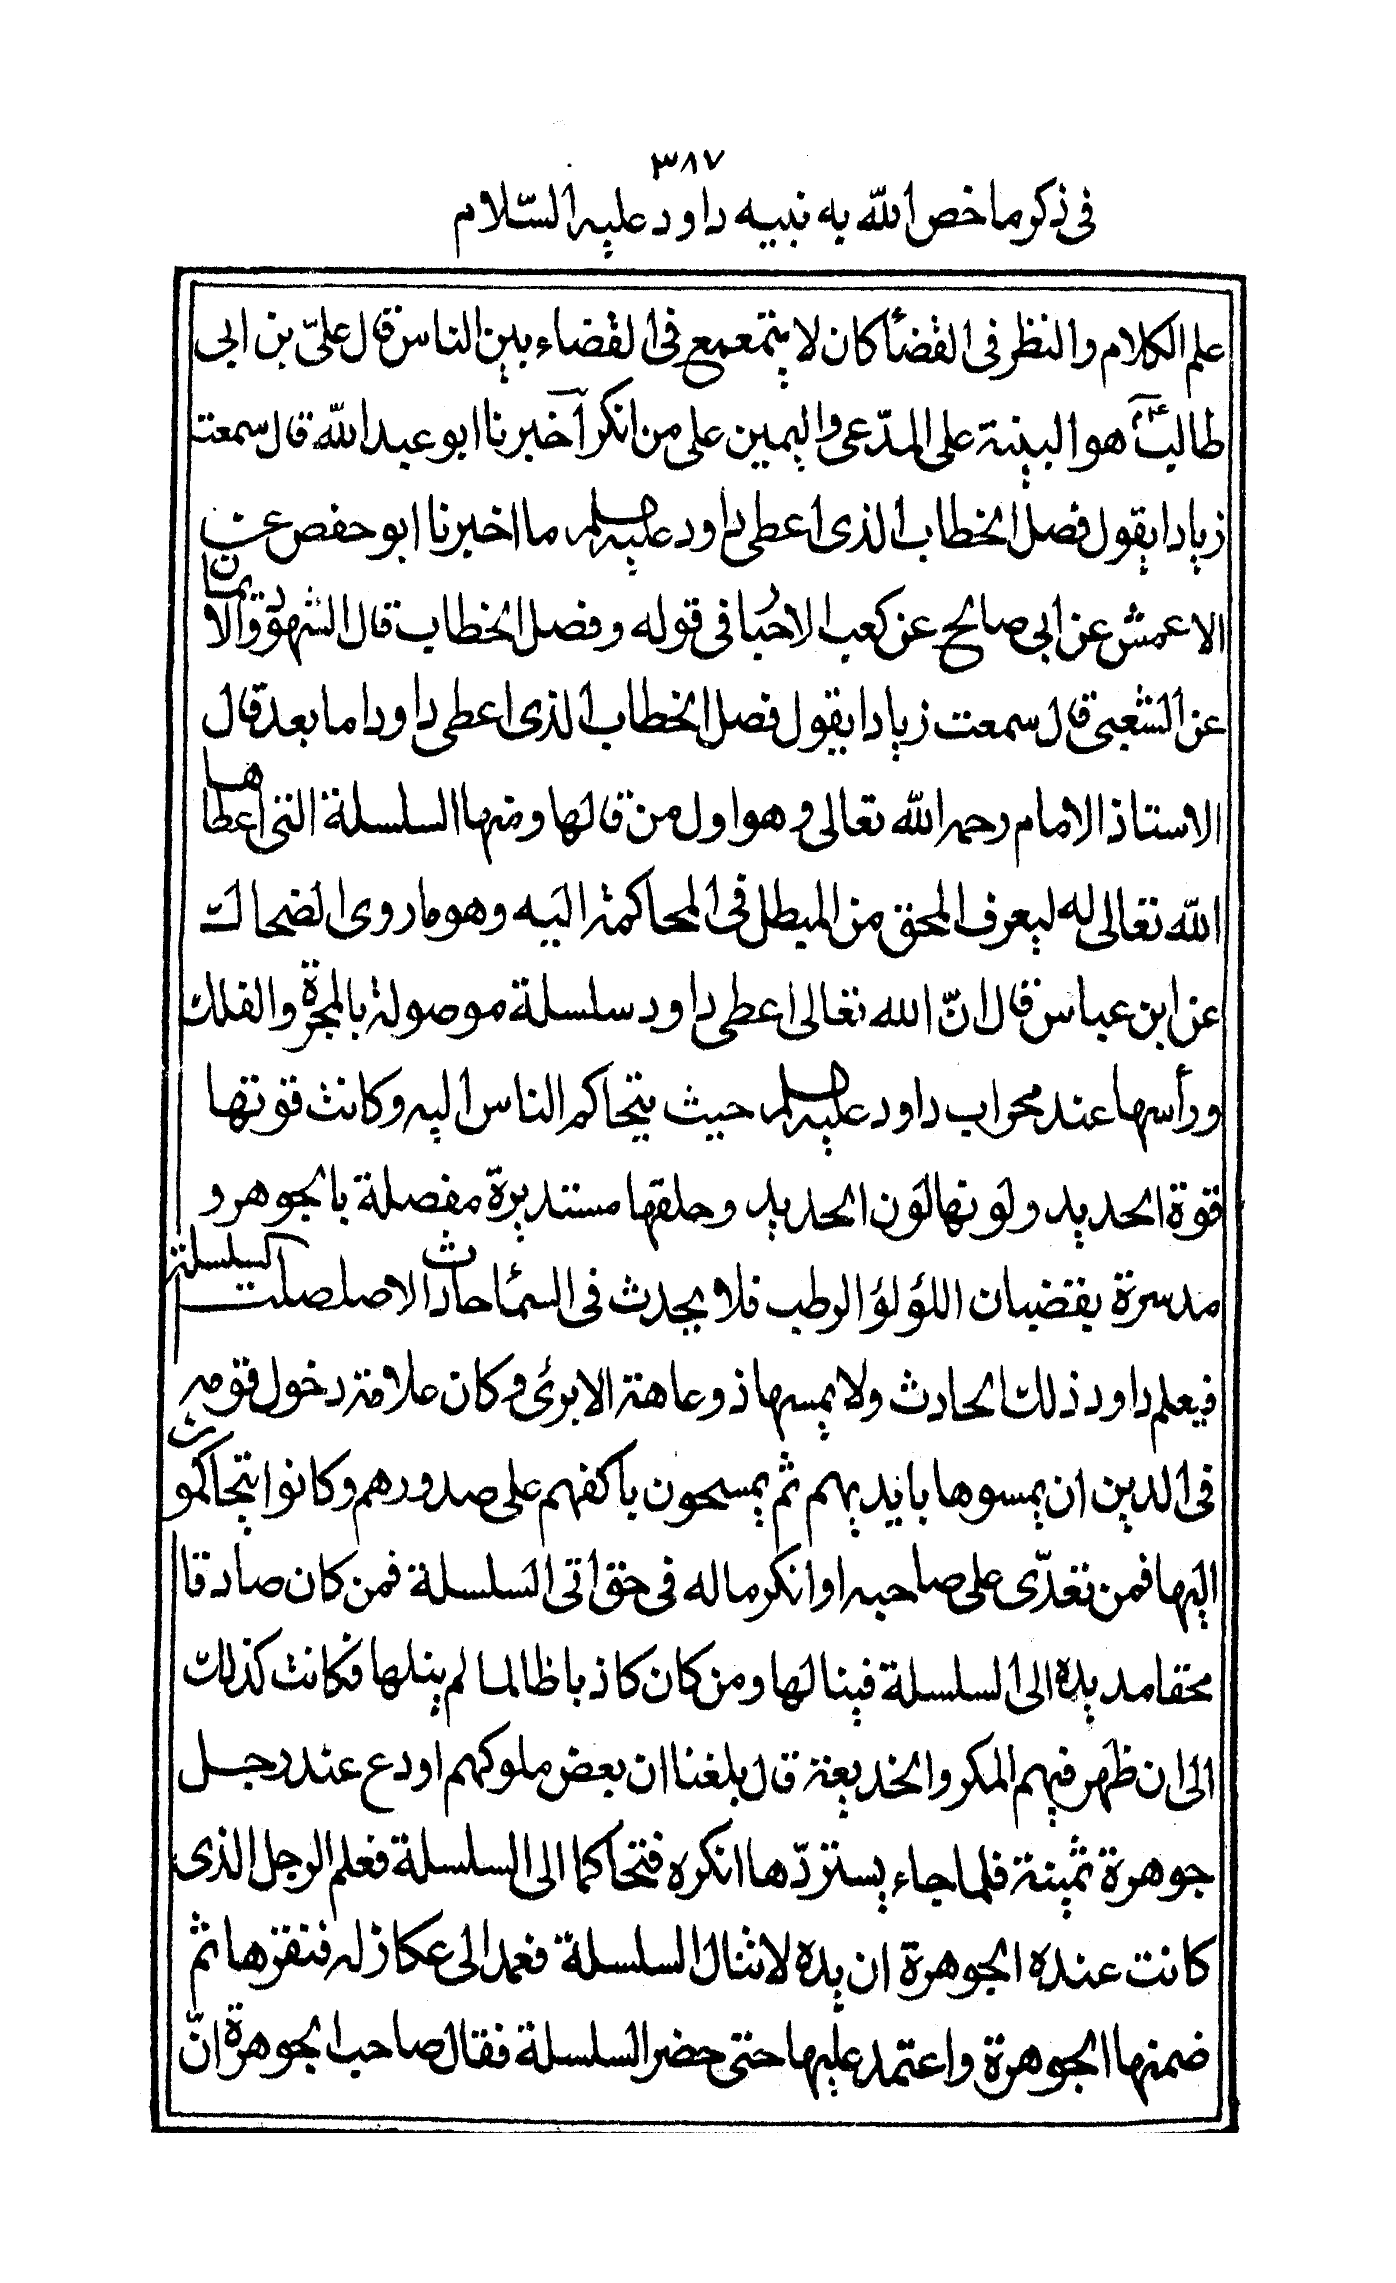 ٣٨٧
فى ذكر ما خص الله به نبيه داود عليه السّلام
علم الكلام والنظر فى القضأ كان لا يتمعمع فى القضاء بين الناس قال علىّ بن ابى
طالبؑ هو البينة على المدّعى واليمين على من انكر آخبرنا ابو عبد الله قال سمعت
زيادا يقول فصل الخطاب الذى اعطى داود عليه السلم ما اخبرنا ابو حفص عن
الاعمش عن ابى صالح عن كعب الاحبار فى قوله وفصل الخطاب قال الشهود والايمان
عن الشعبى قال سمعت زيادا يقول فصل الخطاب الذى اعطى داود اما بعد قال
الاستاذ الامام رحمه الله تعالى وهو اول من قالها ومنها السلسلة التى اعطاها
الله تعالى له ليعرف المحق من المبطل فى المحاكمة اليه وهو ما روى الضحاك
عن ابن عباس قال انّ الله تعالى اعطى داود سلسلة موصولة بالمجرة والفلك
ورأسها عند محراب داود عليه السلم حيث يتحاكم الناس اليه وكانت قوتها
قوة الحديد ولونها لون الحديد وحلقها مستديرة مفصلة بالجوهر و
مدسرة بقضبان اللؤلؤ الرطب فلا يحدث فى السمأ حادث الا صلصلت السلسلة
فيعلم داود ذلك الحادث ولا يمسها ذو عاهة الا برئ وكان علامة دخول قومه
فى الدين ان يمسوها بايديهم ثم يمسحون باكفهم على صدورهم وكانوا يتحاكمون
اليها فمن تعدّى على صاحبه او انكر ماله فى حق اتى السلسلة فمن كان صادقا
محقا مد يده الى السلسلة فينالها ومن كان كاذبا ظالما لم ينلها فكانت كذلك
الى ان ظهر فيهم المكر والخديعة قال بلغنا ان بعض ملوكهم اودع عند رجل
جوهرة ثمينة فلما جاء يستردّها انكره فتحاكما الى السلسلة فعلم الرجل الذى
كانت عنده الجوهرة ان يده لا تنال السلسلة فعمد الى عكازله فنقرها ثم
ضمنها الجوهرة واعتمد عليها حتى حضر السلسلة فقال صاحب الجوهرة انّ